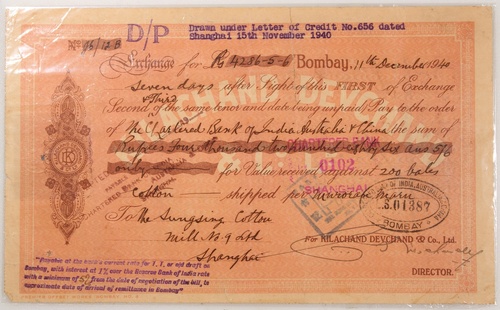 D/P
Drawn under Letter of Credit No.656 dated
Shanghai 15th November 1940
No 16/12 B
Exchange for Rs 4286-5-6 Bombay, 11th December 1940
Seven days after Sight of this FIRST of Exchange
& Third
Second of the same tenor and date being unpaid) Pay to the order
of The Chartered Bank of India, Australia & China the sum of
Rupees four thousand two hundred eighty six ans 5/6
only for Value received against 200 bales
0102
SHANGHAI
Cotton shipped per Maru
OF INDIA, AUSTRALIA
S.01387
BOMBAY
To The Sungsing Cotton
Mill No. 9 Ltd
Shanghai
For KILACHAND DEVCHAND & Co., Ltd.
DIRECTOR.
"Payable at the bank's current rate for T. T. or o/d draft on
Bombay, with interest at 1% over the Reserve Bank of India rate
with a minimum of 5% from the date of negotiation of the bill, to
approximate date of arrival of remittance in Bombay"